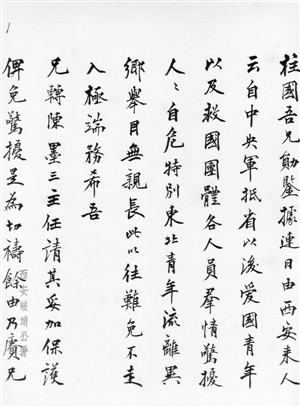 柱國吾兄勛鑒據連日由西安来人
云自中央軍抵省以後愛國青年
以及救國團體各人員羣情驚擾
人〻自危特別東北青年流離異
鄉舉目無親長此以往難免不走
入極端務希吾
兄轉陳墨三主任請其妥加保護
俾免驚擾是為切禱餘由乃賡兄
西安綏靖公署
1